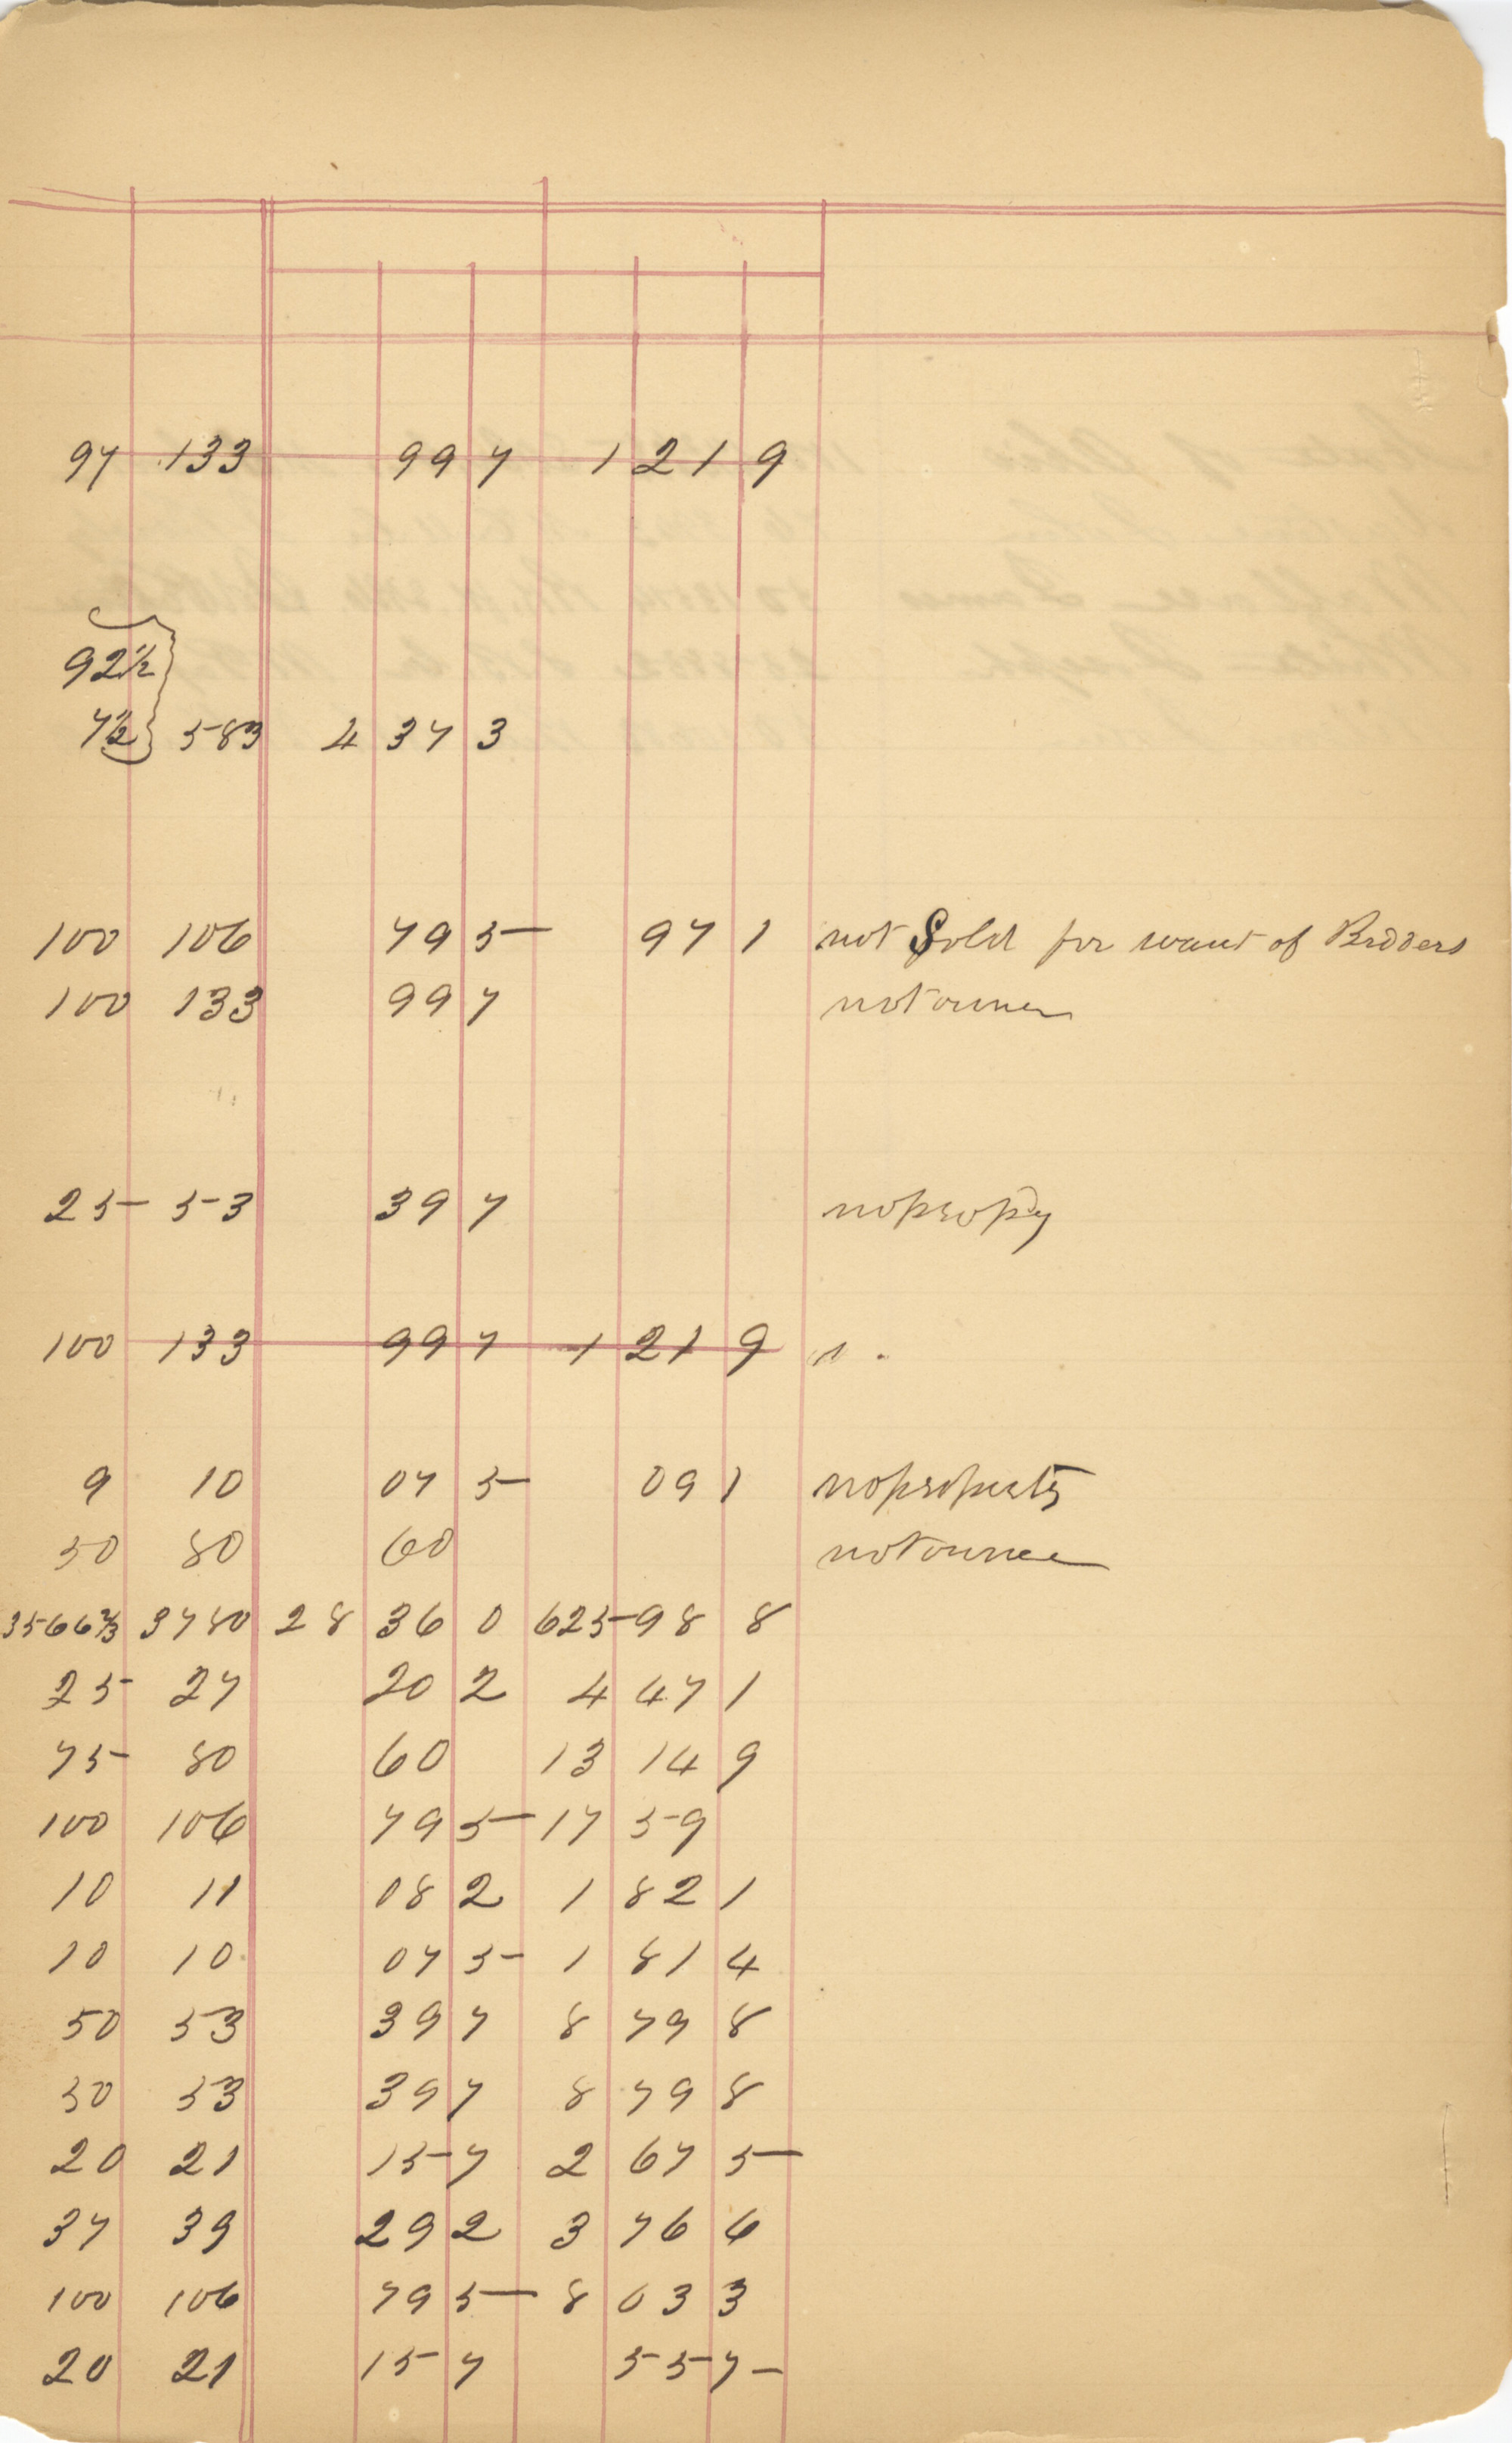 97 133 99 7 1 21 9
92½
7½ 583 4 37 3
100 106 79 5 97 1 not Sold for want of Bidders
100 133 99 7 not owner
25 53 39 7 no propy
100 133 99 7 1 21 9
9 10 07 5 09 1 no property
50 80 60 not owner
3566⅔ 3780 28 36 0 625 98 8
25 27 20 2 4 47 1
75 80 60 13 14 9
100 106 79 5 17 59
10 11 08 2 1 82 1
10 10 07 5 1 81 4
50 53 39 7 8 79 8
50 53 39 7 8 79 8
20 21 15 7 2 67 5
37 39 29 2 3 76 6
100 106 79 5 8 03 3
20 21 15 7 55 7